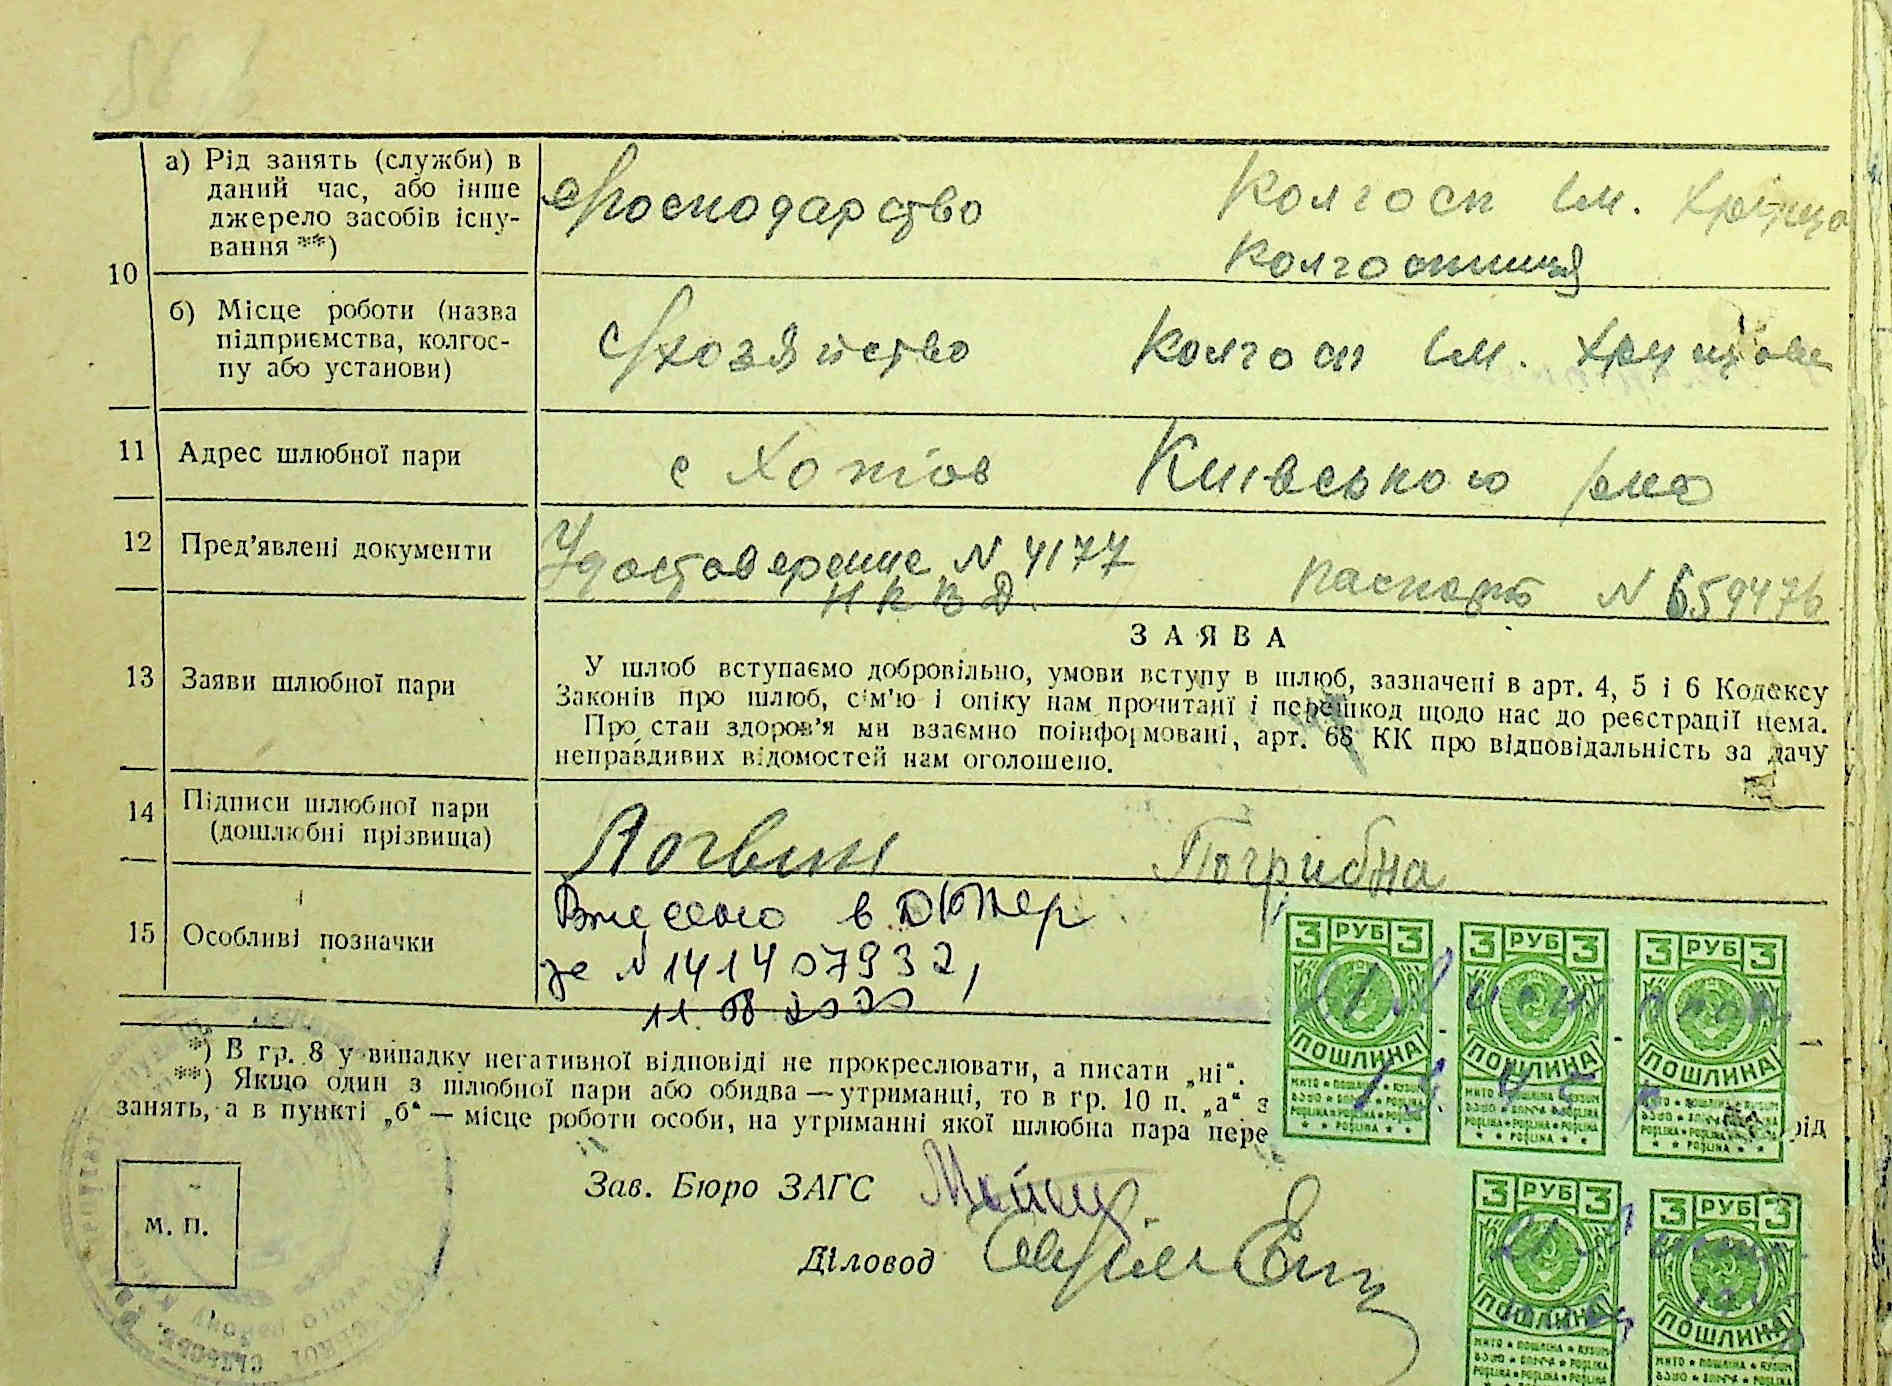 10
а) Рід занять (служби) в
даний час, або інше
джерело засобів існу-
вання **)
с/господарство
Колгосп ім. Хрущо
Колгоспниця
б) Місце роботи (назва
підприємства, колгос-
пу або установи)
с/хозяйство
Колгосп ім. Хрущова
11 Адрес шлюбної пари
с Хотів Київського р-но
12 Пред'явлені документи
Удостоверение N 4177
НКВД.
паспорт N 659476
13 Заяви шлюбної пари
ЗАЯВА
У шлюб вступаємо добровільно, умови вступу в шлюб, зазначені в арт. 4, 5 і 6 Кодексу
Законів про шлюб, сім'ю і опіку нам прочитані і перешкод щодо нас до реєстрації нема.
Про стан здоров'я ми взаємно поінформовані, арт. 68 КК про відповідальність за дачу
неправдивих відомостей нам оголошено.
14 Підписи шлюбної пари
(дошлюбні прізвища)
Логвин Погрибна
15 Особливі позначки
Внесено в
за N 141407932,
11.08 2020
*) В гр. 8 у випадку негативної відповіді не прокреслювати, а писати „ні“.
**) Якщо один з шлюбної пари або обидва — утриманці, то в гр. 10 п. „а“ з
занять, а в пункті „б“ — місце роботи особи, на утриманні якої шлюбна пара пере
рід
Зав. Бюро ЗАГС
Діловод
М. П.
3 РУБ 3
ПОШЛИНА
3 РУБ 3
ПОШЛИНА
3 РУБ 3
ПОШЛИНА
3 РУБ 3
ПОШЛИНА
3 РУБ 3
ПОШЛИНА